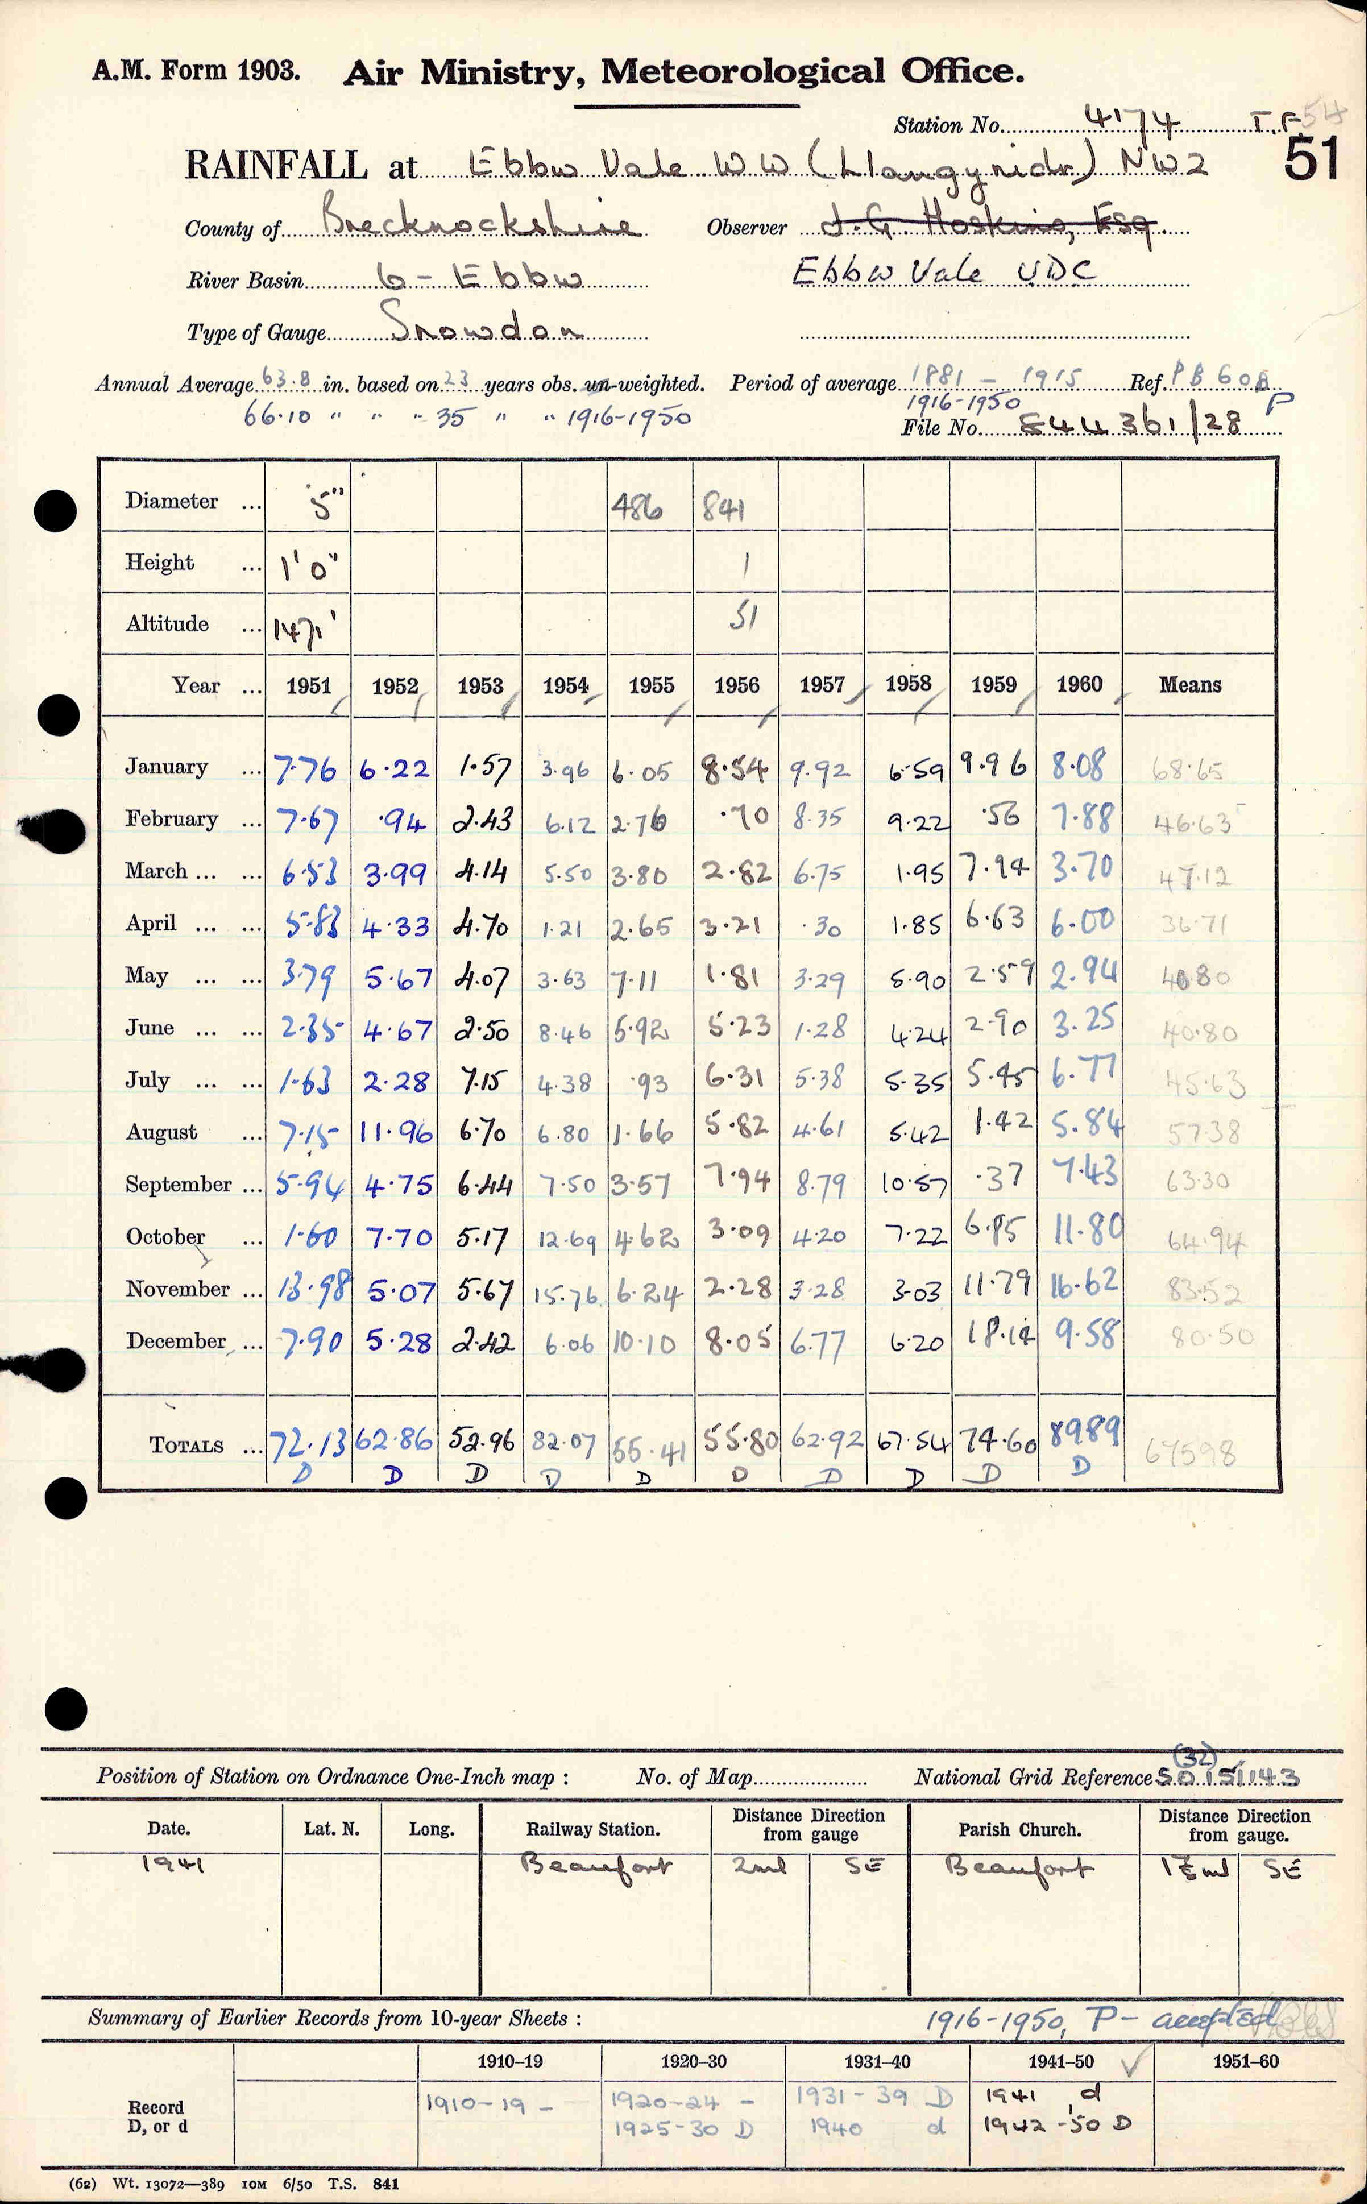 A.M. Form 1903. Air Ministry, Meteorological Office.
Station No. 4174 I.F. 54
RAINFALL at Ebbw Vale W W (Llangynidr) NW2 51
County of Brecknockshire Observer J.G. Hoskins, Esq.
River Basin 6 - Ebbw Ebbw Vale UDC
Type of Gauge Snowdon
Annual Average 63.8 in. based on 23 years obs. un-weighted. Period of average 1881 - 1915 Ref. PB 60B P
66.10 " " " 35 " " 1916-1950 1916-1950
File No. 544361/28
Diameter ... 5" 486 841
Height ... 1'0" 1
Altitude ... 1471' 51
Year ... 1951 1952 1953 1954 1955 1956 1957 1958 1959 1960 Means
January ... 7.76 6.22 1.57 3.96 6.05 8.54 9.92 6.59 9.96 8.08 68.65
February ... 7.67 .94 2.43 6.12 2.76 .70 8.35 9.22 .56 7.88 46.63
March ... ... 6.53 3.99 4.14 5.50 3.80 2.82 6.75 1.95 7.94 3.70 47.12
April ... ... 5.83 4.33 4.70 1.21 2.65 3.21 .30 1.85 6.63 6.00 36.71
May ... ... 3.79 5.67 4.07 3.63 7.11 1.81 3.29 5.90 2.59 2.94 40.80
June ... ... 2.35 4.67 2.50 8.46 5.92 5.23 1.28 4.24 2.90 3.25 40.80
July ... ... 1.63 2.28 7.15 4.38 .93 6.31 5.38 5.35 5.45 6.77 45.63
August ... 7.15 11.96 6.70 6.80 1.66 5.82 4.61 5.42 1.42 5.84 57.38
September ... 5.94 4.75 6.44 7.50 3.57 7.94 8.79 10.57 .37 7.43 63.30
October ... 1.60 7.70 5.17 12.69 4.62 3.09 4.20 7.22 6.85 11.80 64.94
November ... 13.98 5.07 5.67 15.76 6.24 2.28 3.28 3.03 11.79 16.62 83.52
December ... 7.90 5.28 2.42 6.06 10.10 8.05 6.77 6.20 18.14 9.58 80.50
TOTALS ... 72.13 62.86 52.96 82.07 55.41 55.80 62.92 67.54 74.60 89.89 67598
D D D D D D D D D D
Position of Station on Ordnance One-Inch map : No. of Map National Grid Reference (32) SO 151143
Date. Lat. N. Long. Railway Station. Distance Direction from gauge Parish Church. Distance Direction from gauge.
1941 Beaufort 2ml SE Beaufort SE
Summary of Earlier Records from 10-year Sheets : 1916-1950, P - accepted
1910–19 1920–30 1931–40 1941–50 1951–60
Record D, or d
1910-19 - 1920-24 - 1931-39 D 1941 d
1925-30 D 1940 d 1942-50 D
(62) Wt. 13072—389 10M 6/50 T.S. 841